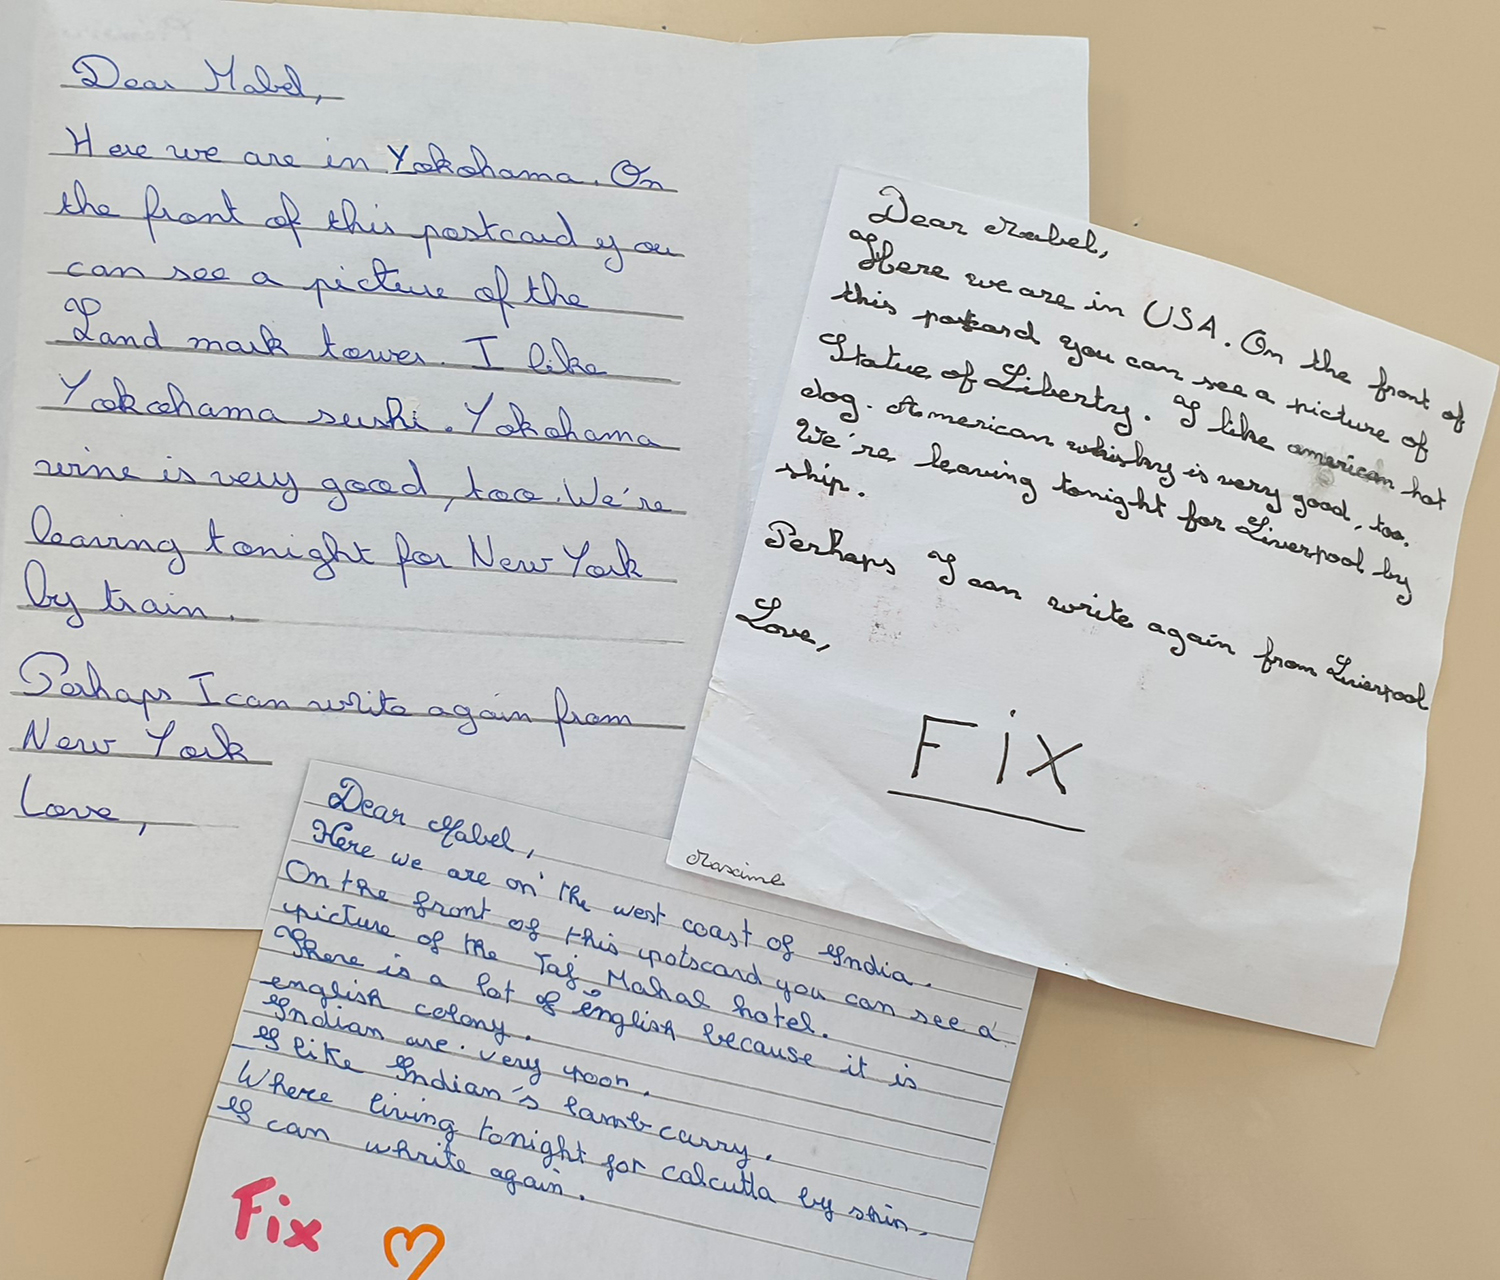 Dear Mabel,
Here we are in Yokohama. On
the front of this postcard you
can see a picture of the
Land mark tower. I like
Yokohama sushi. Yokohama
wine is very good, too. We're
leaving tonight for New York
by train.
Perhaps I can write again from
New York
Love,
Dear Mabel,
Here we are in USA. On the front of
this postcard you can see a picture of
Statue of Liberty. I like american hot
dog. American whisky is very good, too.
We're leaving tonight for Liverpool by
ship.
Perhaps I can write again from Liverpool
Love,
FiX
Maxime
Dear Mabel,
Here we are on the west coast of India.
On the front of this potscard you can see a
picture of the Taj Mahal hotel.
There is a lot of english because it is
english colony.
Indian are very poor.
I like Indian's lamb carry.
Where living tonight for calcutta by
I can whrite again.
Fix